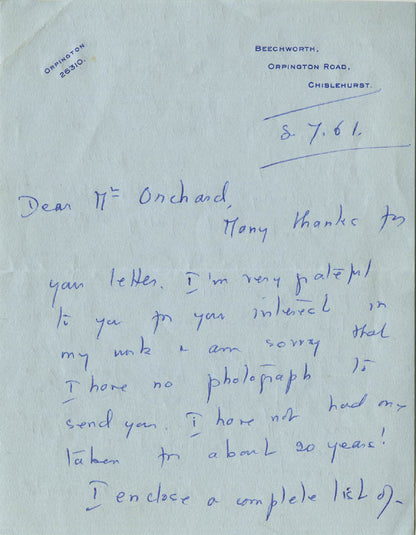 ORPINGTON
25310.
BEECHWORTH,
ORPINGTON ROAD,
CHISLEHURST.
8. 7. 61.
Dear Mr Orchard,
Many thanks for
your letter. I'm very grateful
to you for your interest in
my work & am sorry that
I have no photograph to
send you. I have not had any
taken for about 20 years!
I enclose a complete list of